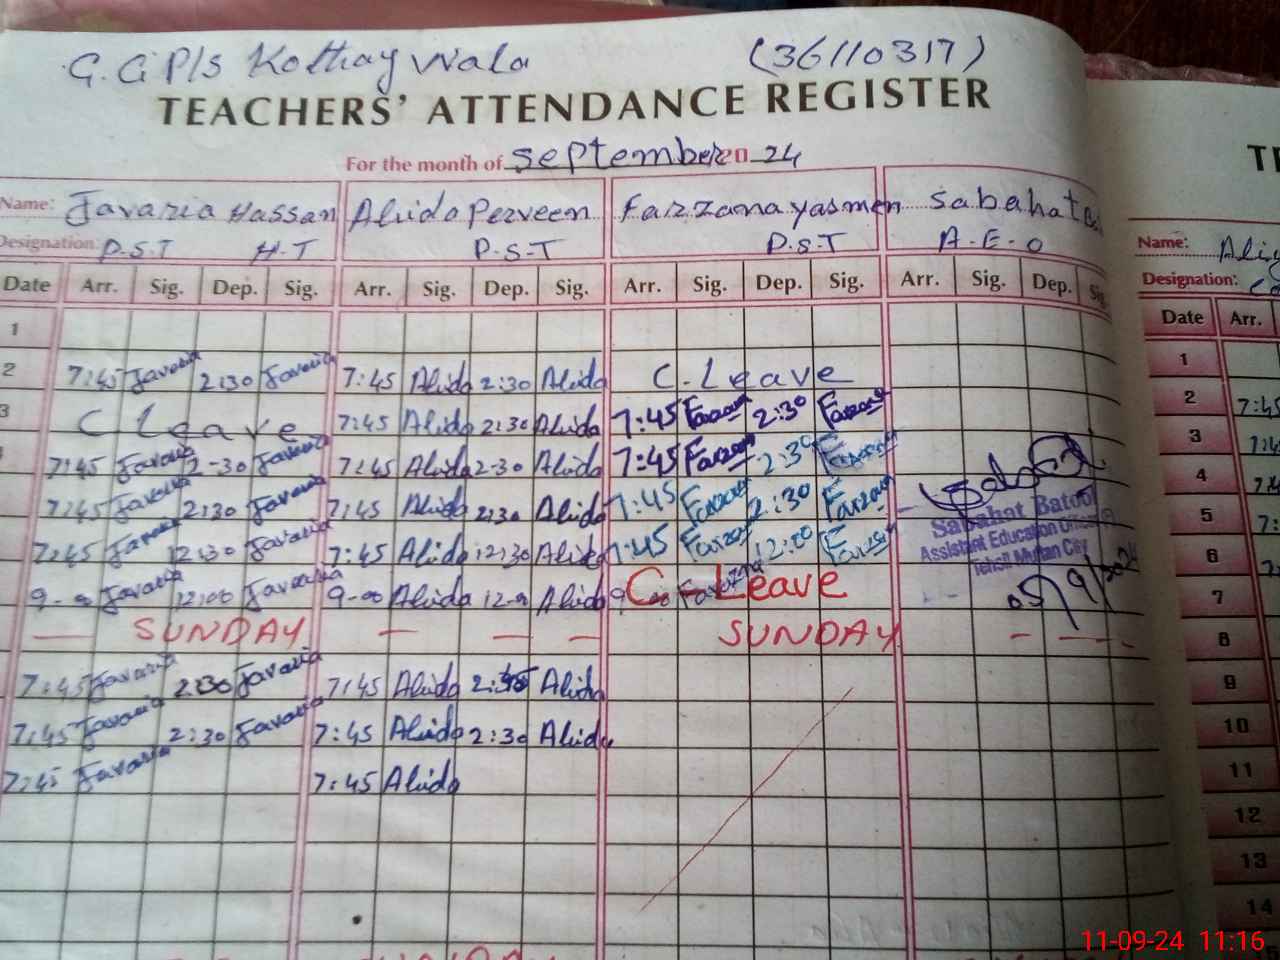 G. G P/s Kothay Wala (36110317)
TEACHERS' ATTENDANCE REGISTER
For the month of September 2024
Name: Javaria Hassan Alida Perveen Farzzana yasmen Sabahat
Designation: P.S.T H.T P.S.T P.S.T A.E.O Name:
Designation:
Date Arr. Sig. Dep. Sig. Arr. Sig. Dep. Sig. Arr. Sig. Dep. Sig. Arr. Sig. Dep. Date Arr.
1 1
2 7:45 Javaria 2:30 Javaria 7:45 Alida 2:30 Alida C. Leave 2
3 C Leave 7:45 Alida 2:30 Alida 7:45 Farzana 2:30 Farzana 3
7:45 Javaria 2-30 Javaria 7:45 Alida 2-30 Alida 7:45 Farzana 2:30 Farzana 4
7:45 Javaria 2:30 Javaria 7:45 Alida 2:30 Alida 7:45 Farzana 2:30 Farzana 5
7:45 Javaria 12:30 Javaria 7:45 Alida 12:30 Alida 7:45 Farzana 12:00 Farzana 6
9-00 Javaria 12:00 Javaria 9-00 Alida 12-0 Alida C- Leave 7
Sabahat Batool
Assistant Education Officer
Tehsil Multan City
05/9/2024
— SUNDAY — — — SUNDAY — — 8
7:45 Javaria 2:30 Javaria 7:45 Alida 2:30 Alida 9
7:45 Javaria 2:30 Javaria 7:45 Alida 2:30 Alida 10
7:45 Javaria 7:45 Alida 11
12
13
14
11-09-24 11:16